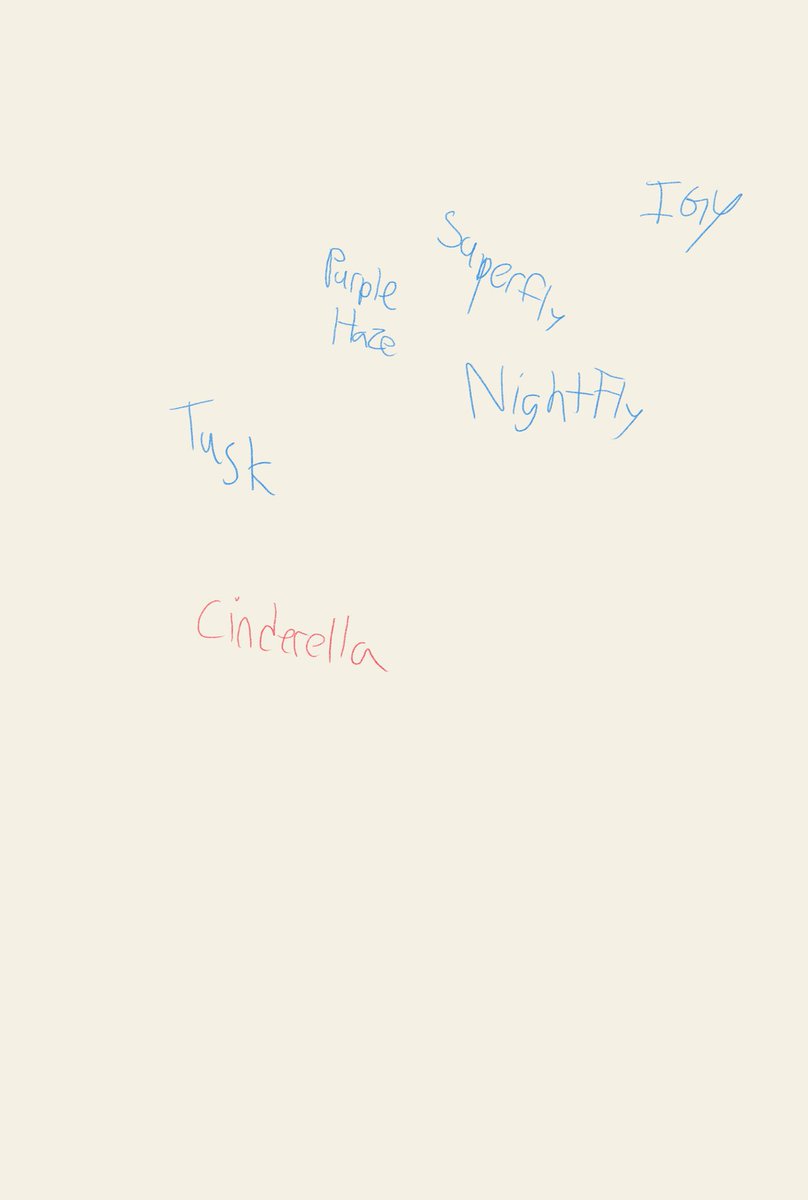 IGY
Superfly
Purple
Haze
NightFly
Tusk
Cinderella